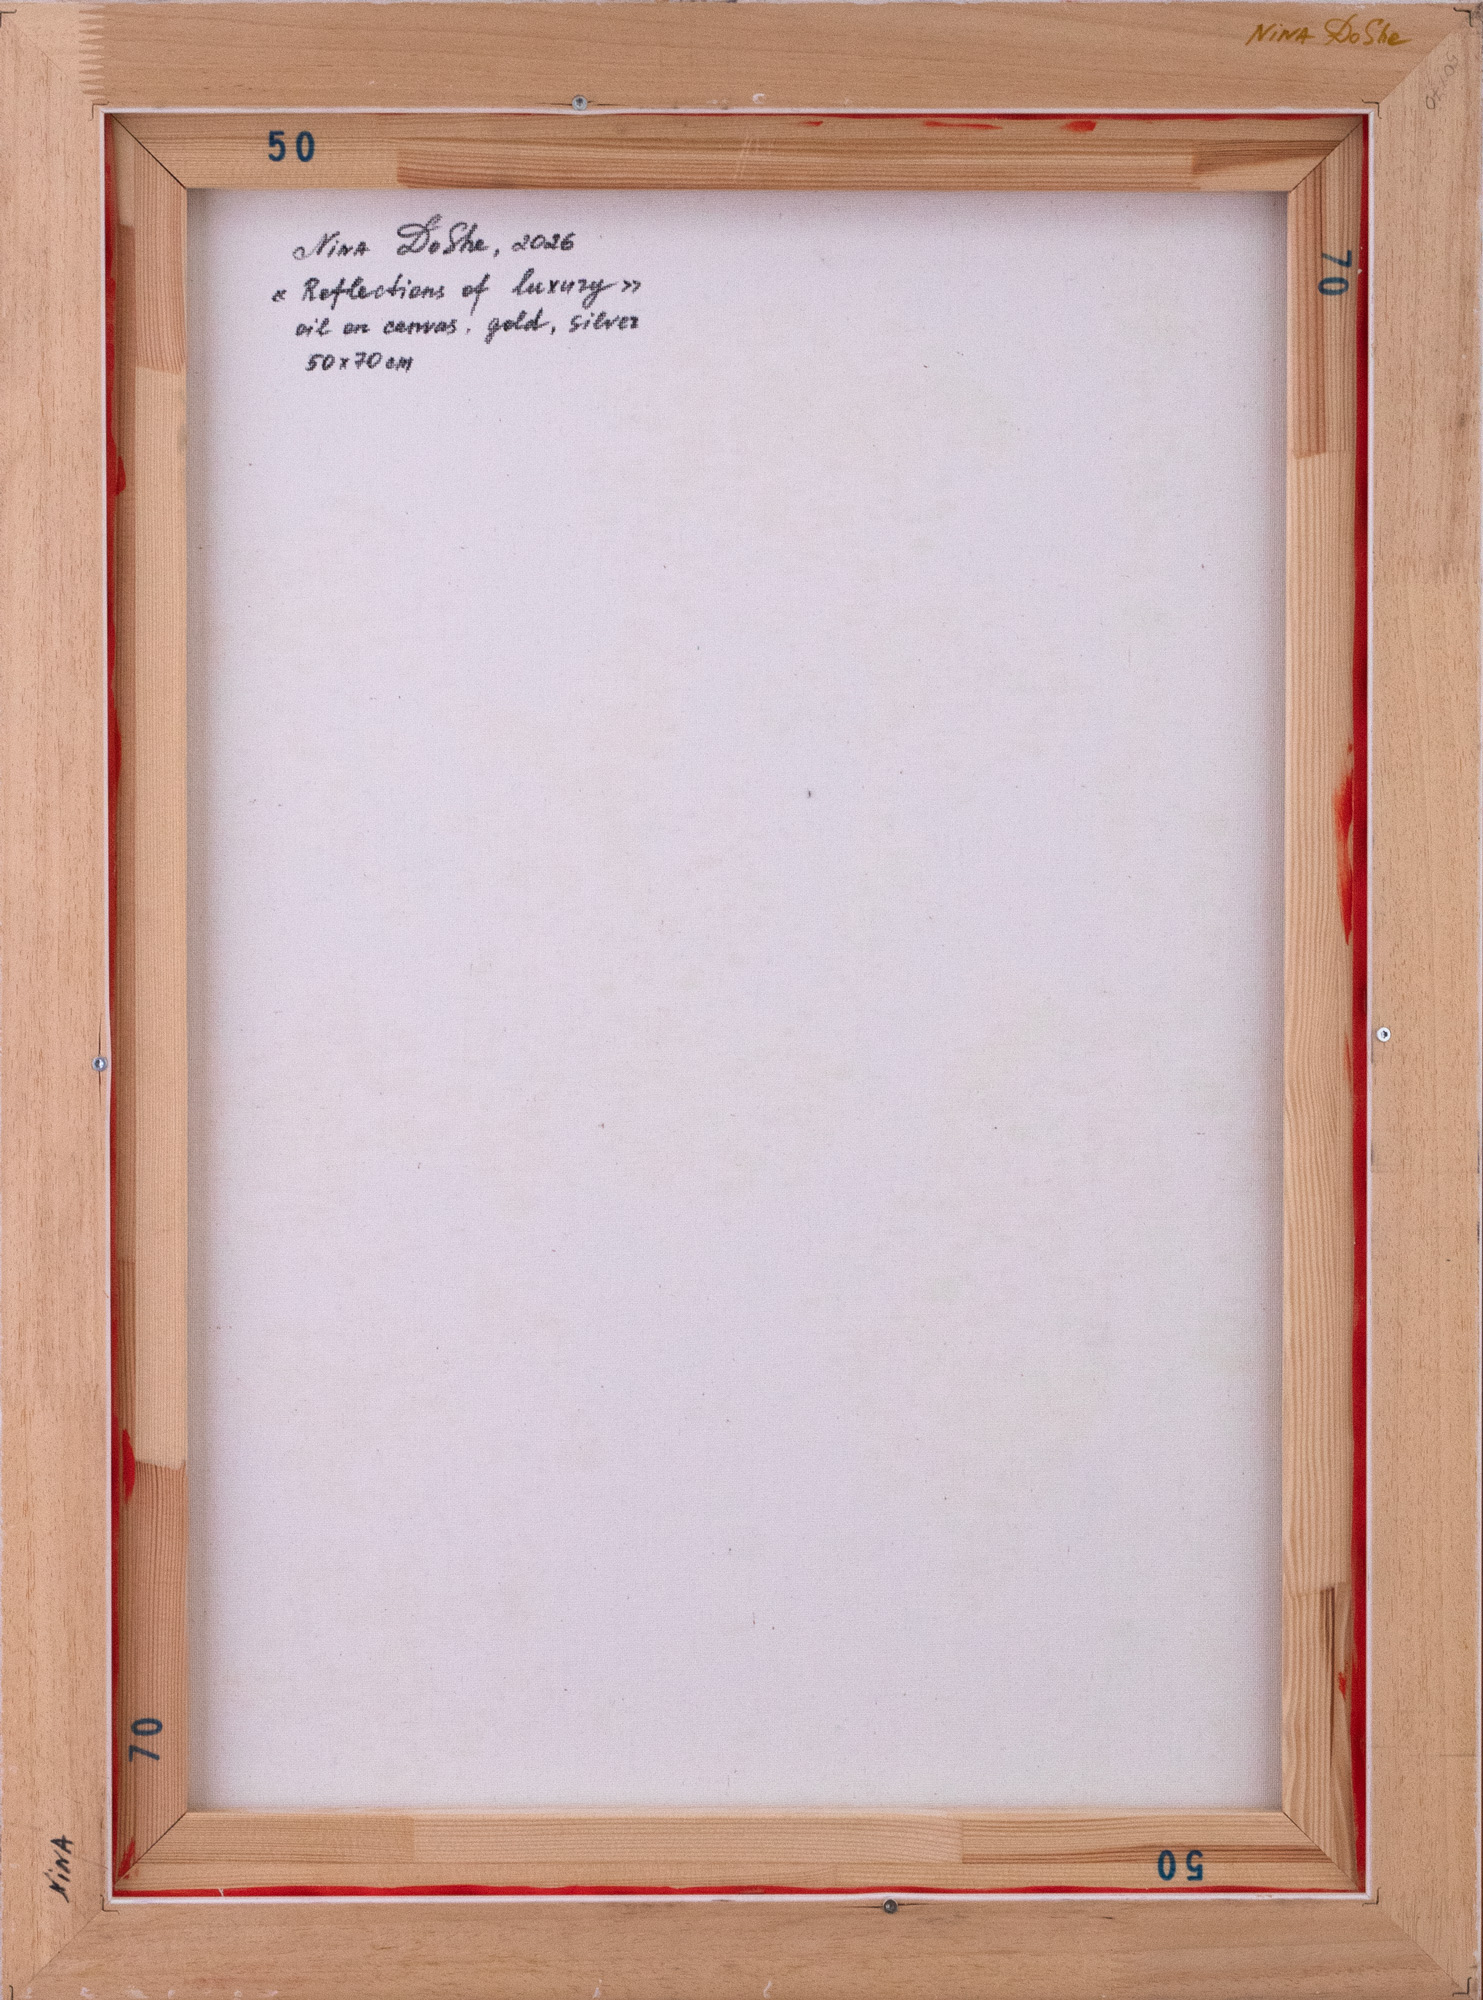 NiNA DoShe
50 x 70
50
NiNA DoShe, 2026
« Reflections of luxury »
oil on canvas, gold, silver
50x70cm
70
70
NiNA
50